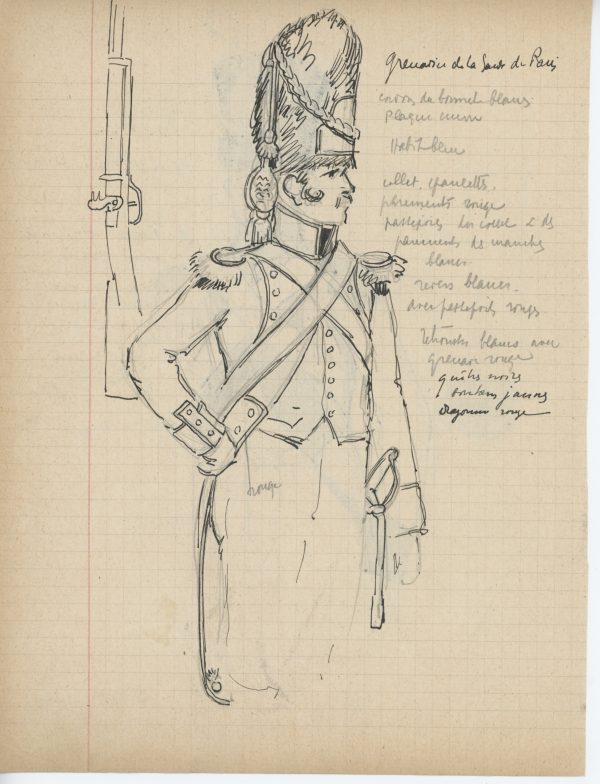 grenadier de la Garde de Paris
cordons du bonnet blancs
Plaque
Habit bleu
collet, epaulettes,
parements rouge
passepoils du collet & des
parements de manches
blancs
revers blancs.
avec passepoils rouges
retroussis blancs avec
grenade rouge
guêtres noires
boutons jaunes
dragonne rouge
rouge